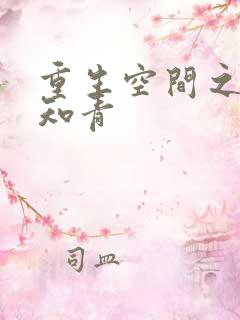 重生空間之
知青
司皿